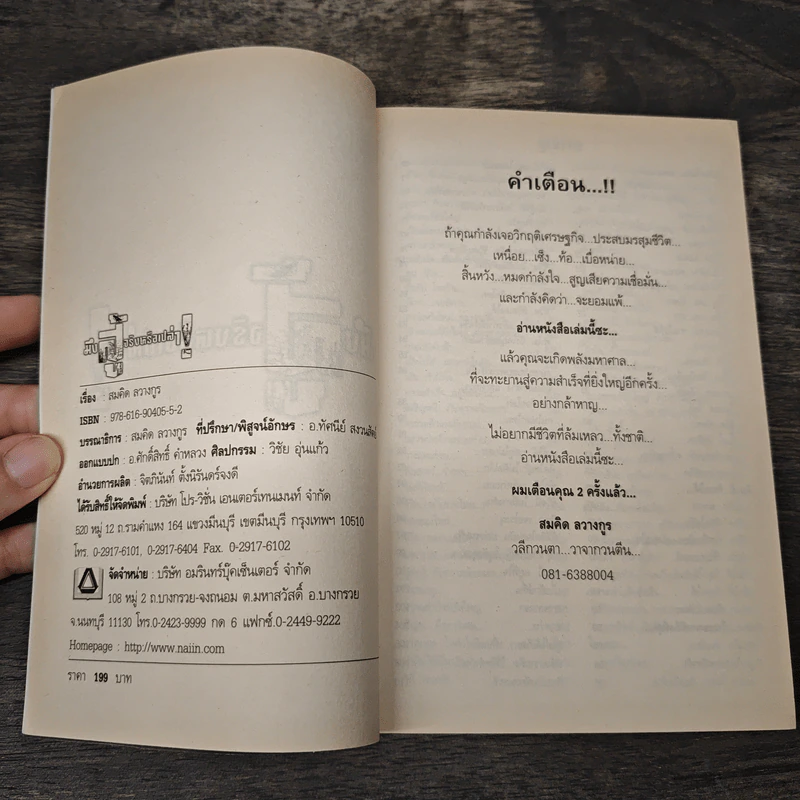 เรื่อง : สมคิด ลวางกูร
ISBN : 978-616-90405-5-2
บรรณาธิการ : สมคิด ลวางกูร ที่ปรึกษา/พิสูจน์อักษร : อ.ทัศนีย์
ออกแบบปก : อ.ศักดิ์สิทธิ์ คำหลวง ศิลปกรรม : วิชัย อุ่นแก้ว
อำนวยการผลิต : จิตภินันท์ ตั้งนิรันดร์จงดี
ได้รับสิทธิ์ให้จัดพิมพ์ : บริษัท โปร-วิชั่น เอนเตอร์เทนเมนท์ จำกัด
520 หมู่ 12 ถ.รามคำแหง 164 แขวงมีนบุรี เขตมีนบุรี กรุงเทพฯ 10510
โทร. 0-2917-6101, 0-2917-6404 Fax. 0-2917-6102
จัดจำหน่าย : บริษัท อมรินทร์บุ๊คเซ็นเตอร์ จำกัด
108 หมู่ 2 ถ.บางกรวย-จงถนอม ต.มหาสวัสดิ์ อ.บางกรวย
จ.นนทบุรี 11130 โทร.0-2423-9999 กด 6 แฟกซ์.0-2449-9222
Homepage : http://www.naiin.com
ราคา 199 บาท
คำเตือน...!!
ถ้าคุณกำลังเจอวิกฤติเศรษฐกิจ...ประสบมรสุมชีวิต...
เหนื่อย...เซ็ง...ท้อ...เบื่อหน่าย...
สิ้นหวัง...หมดกำลังใจ...สูญเสียความเชื่อมั่น...
และกำลังคิดว่า...จะยอมแพ้...
อ่านหนังสือเล่มนี้ซะ...
แล้วคุณจะเกิดพลังมหาศาล...
ที่จะทะยานสู่ความสำเร็จที่ยิ่งใหญ่อีกครั้ง...
อย่างกล้าหาญ...
ไม่อยากมีชีวิตที่ล้มเหลว...ทั้งชาติ...
อ่านหนังสือเล่มนี้ซะ...
ผมเตือนคุณ 2 ครั้งแล้ว...
สมคิด ลวางกูร
วลีกวนตา...วาจากวนตีน...
081-6388004